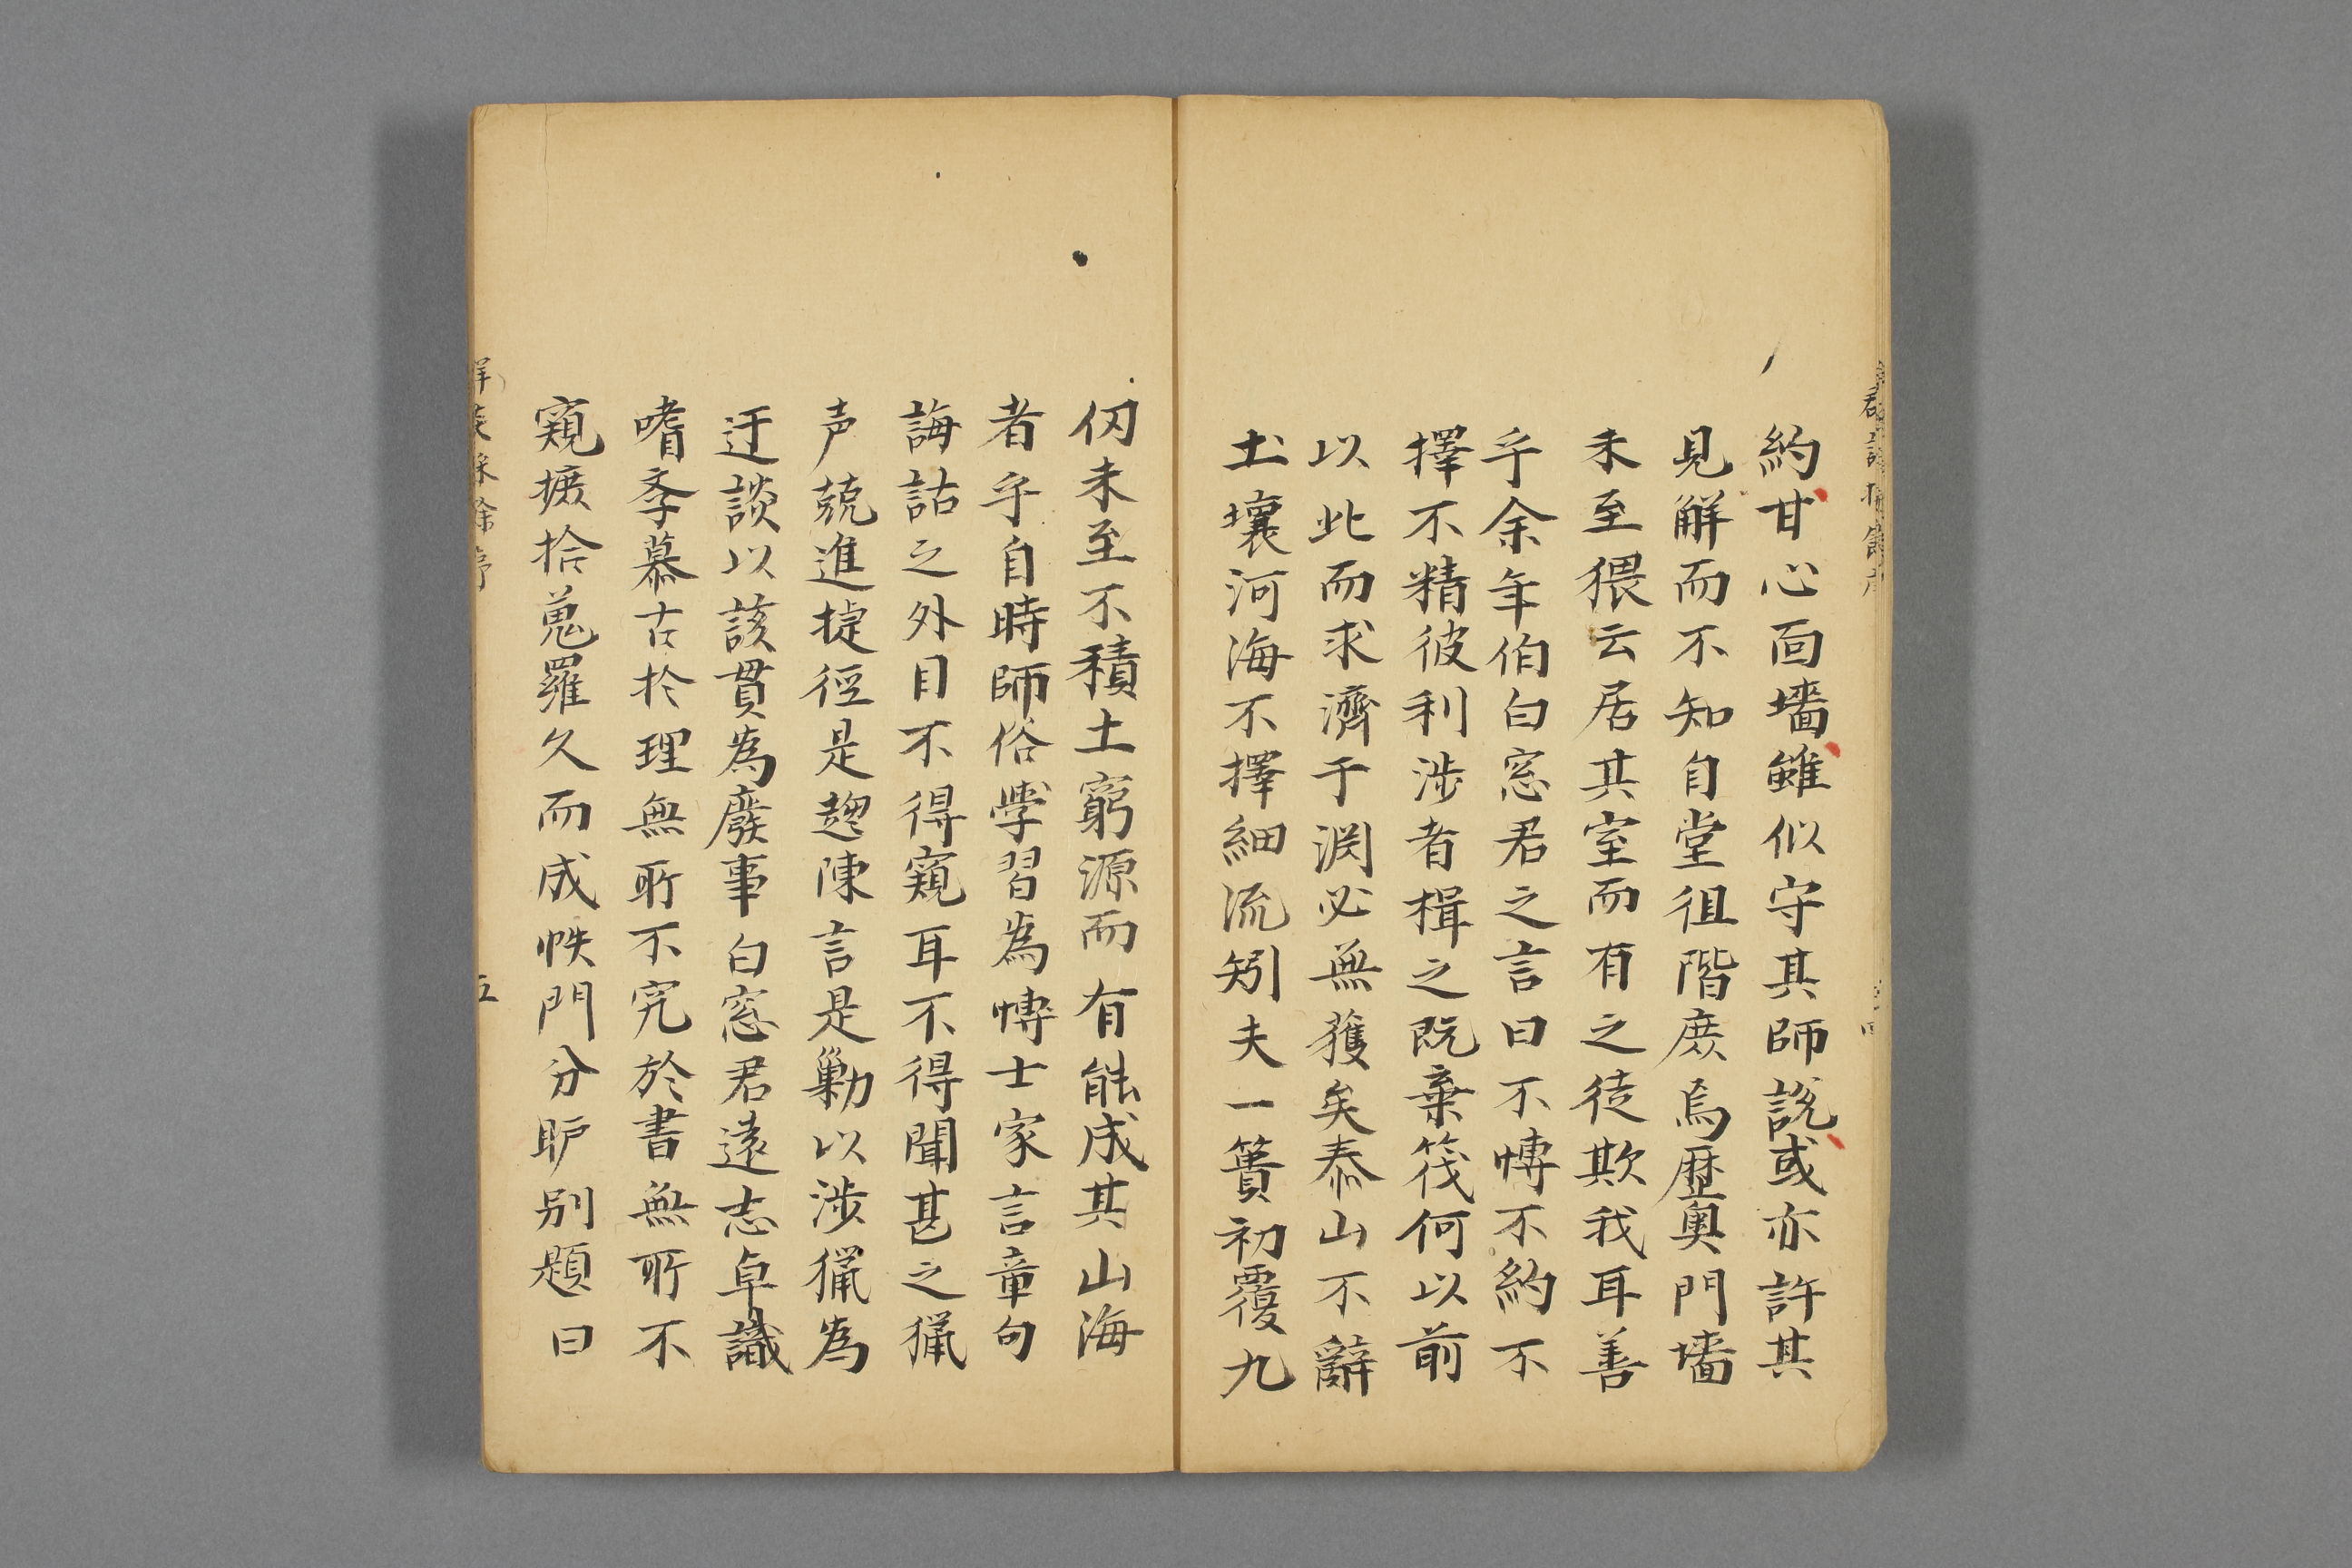 約甘心面墻雖似守其師說或亦許其
見解而不知自堂徂階庶焉歷奧門墻
未至猥云居其室而有之徒欺我耳善
乎余年伯白窓君之言曰不慱不約不
擇不精彼利涉者楫之既棄筏何以前
以此而求濟于渕必無獲矣泰山不辭
土壤河海不擇細流矧夫一簣初覆九
仞未至不積土窮源而有能成其山海
者乎自時師俗學習為慱士家言章句
誨詁之外目不得窺耳不得聞甚之獵
声兢進捷徑是趍陳言是勦以涉獵為
迂談以該貫為廢事白窓君遠志卓識
嗜奇慕古扵理無所不究於書無所不
窺摭拾蒐羅久而成帙門分眎別題曰
五